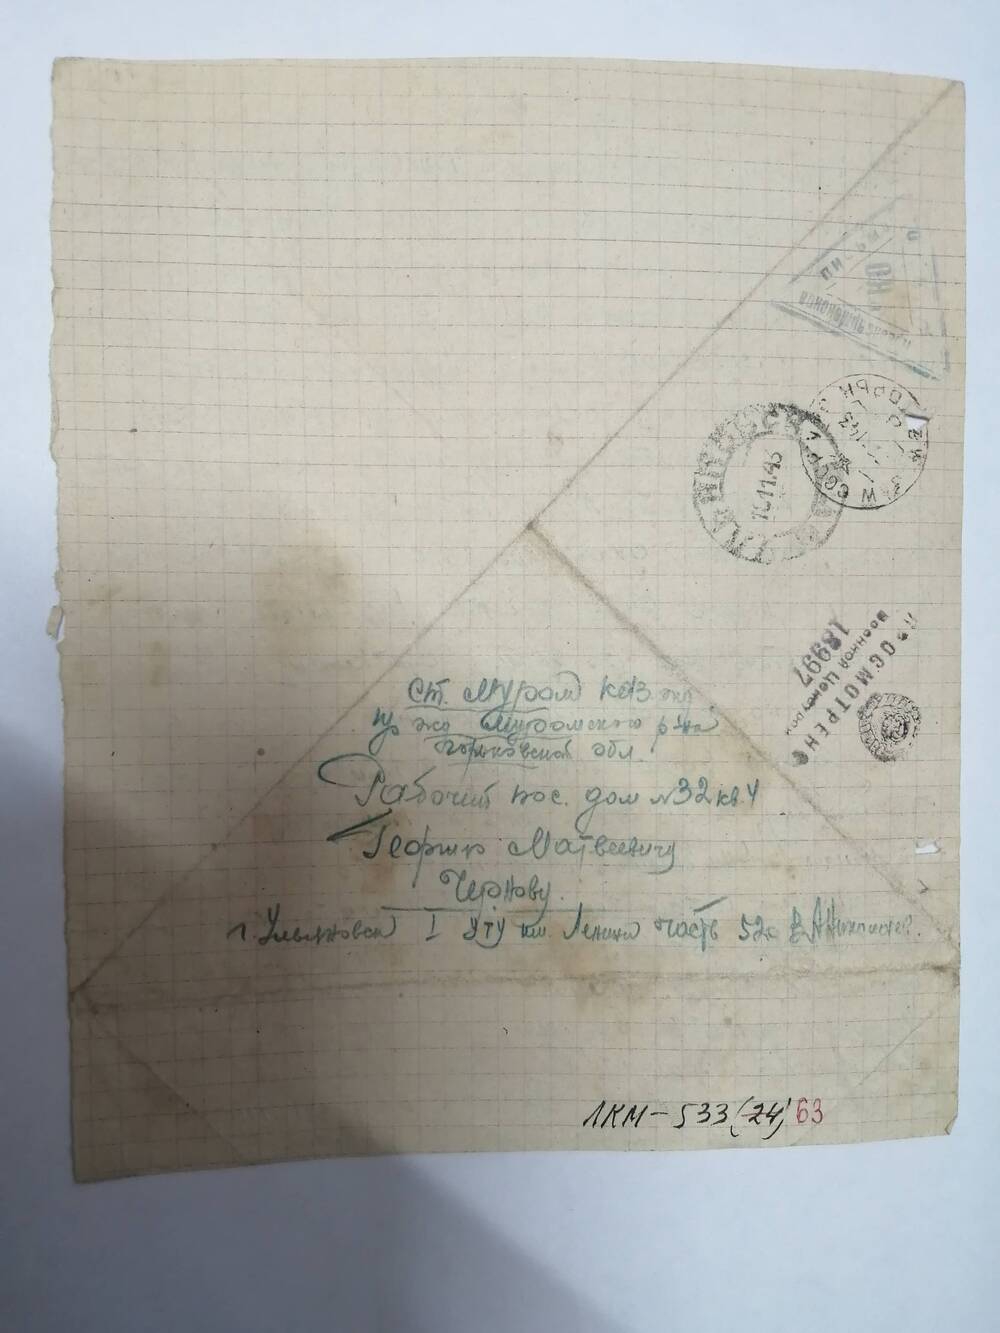 ст. Муром Каз. жд
Муромского р-на
Горьковской обл.
Рабочий пос. дом №32 кв. 4
Георгию Матвеевичу
Чернову.
г. Ульяновск I УТУ им. Ленина часть 520
ПРОСМОТРЕНО
Военной Цензурой
18997
УЛЬЯНОВСК
16 11 43
СССР
43
ЛКМ-533(24) 63